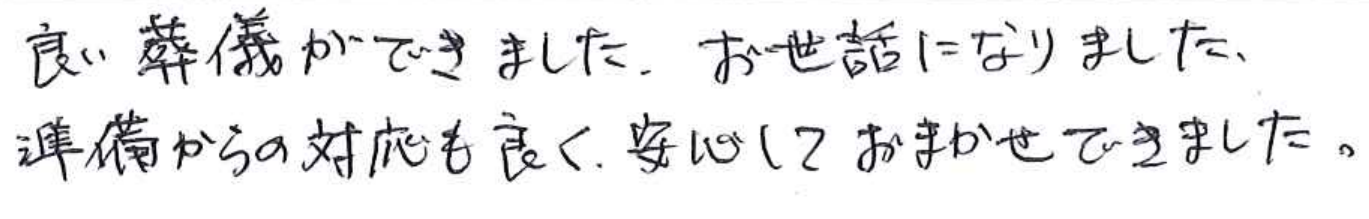 良い葬儀ができました。お世話になりました、
準備からの対応も良く、安心しておまかせできました。